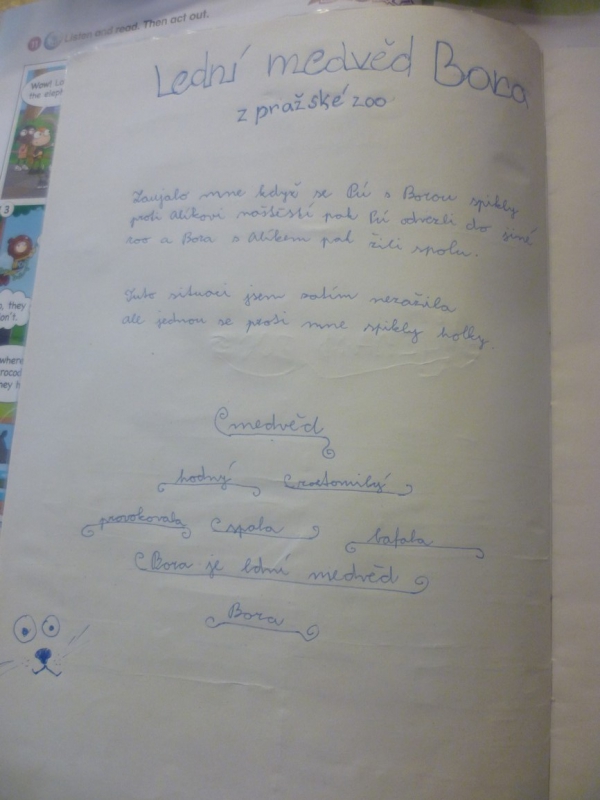 11 Listen and read. Then act out.
Wow! Lo
the eleph
3
, they
on't.
where
rocod
hey li
Lední medvěd Bora
z pražské zoo
Zaujalo mne když se Pú s Borou spikly
proti Alíkovi naštěstí pak Pú odvezli do jiné
zoo a Bora s Alíkem pak žili spolu.
Tuto situaci jsem zatím nezažila
ale jednou se proti mne spikly holky.
medvěd
hodný roztomilý
provokovala spala bafala
Bora je lední medvěd
Bora